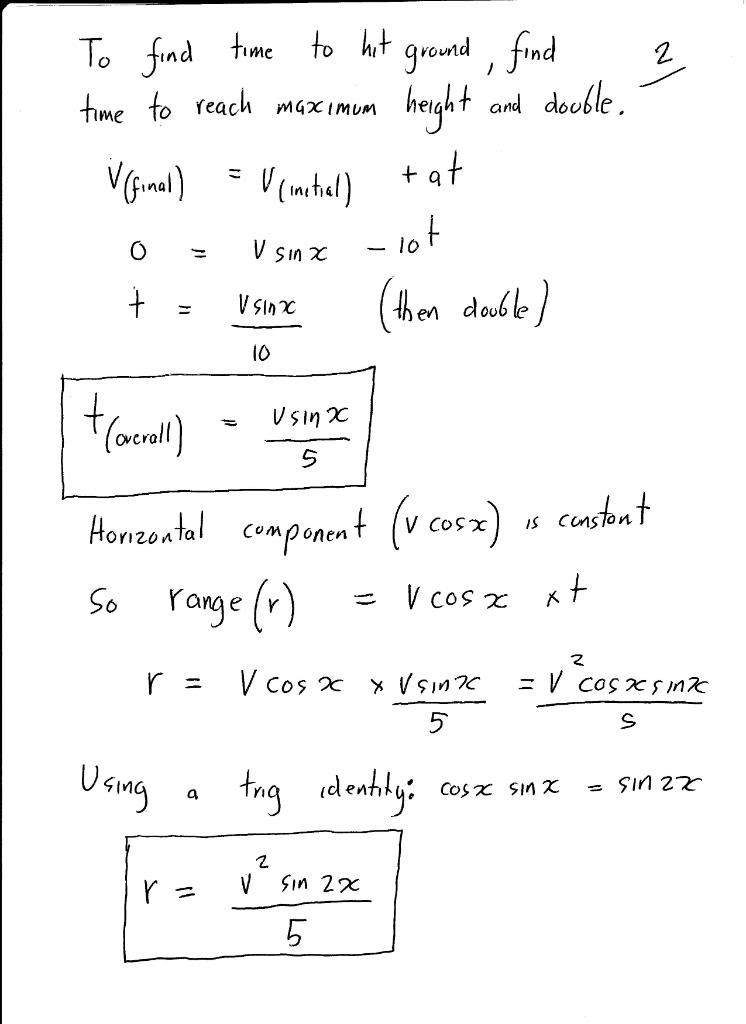 To find time to hit ground, find 2
time to reach maximum height and double.
V(final) = V(initial) + at
0 = V sin x - 10t
t = V sin x / 10 (then double)
t(overall) = V sin x / 5
Horizontal component (V cos x) is constant
So range (r) = V cos x × t
r = V cos x × V sin x / 5 = V² cos x sin x / 5
Using a trig identity: cos x sin x = sin 2x
r = V² sin 2x / 5